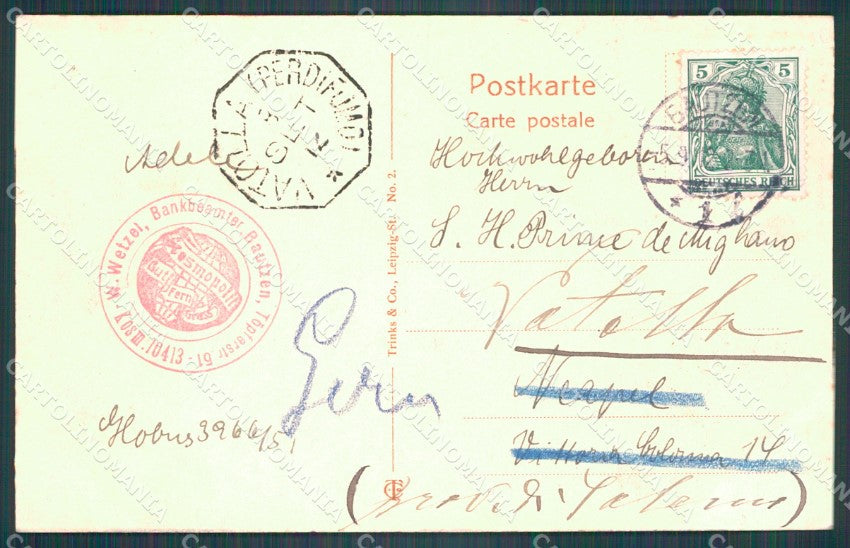 VATOLLA (PERDIFUMO) *
Postkarte
Carte postale
5 5
DEUTSCHES REICH
BAUTZEN
* 1
Adel
Hochwohlgeboren
Herrn
S. H. Prince de Mighano
W. Wetzel, Bankbeamter, Bautzen, Töpferstr. 19
Kosm. 10413
Kosmopolit
Gut Fern Gruss
Vatolla
Neapel
Vittoria Colonna 14
Globus 3966/51
(Prov. di Salerno)
Trinks & Co., Leipzig-St. No. 2.
CARTOLINOMANIA